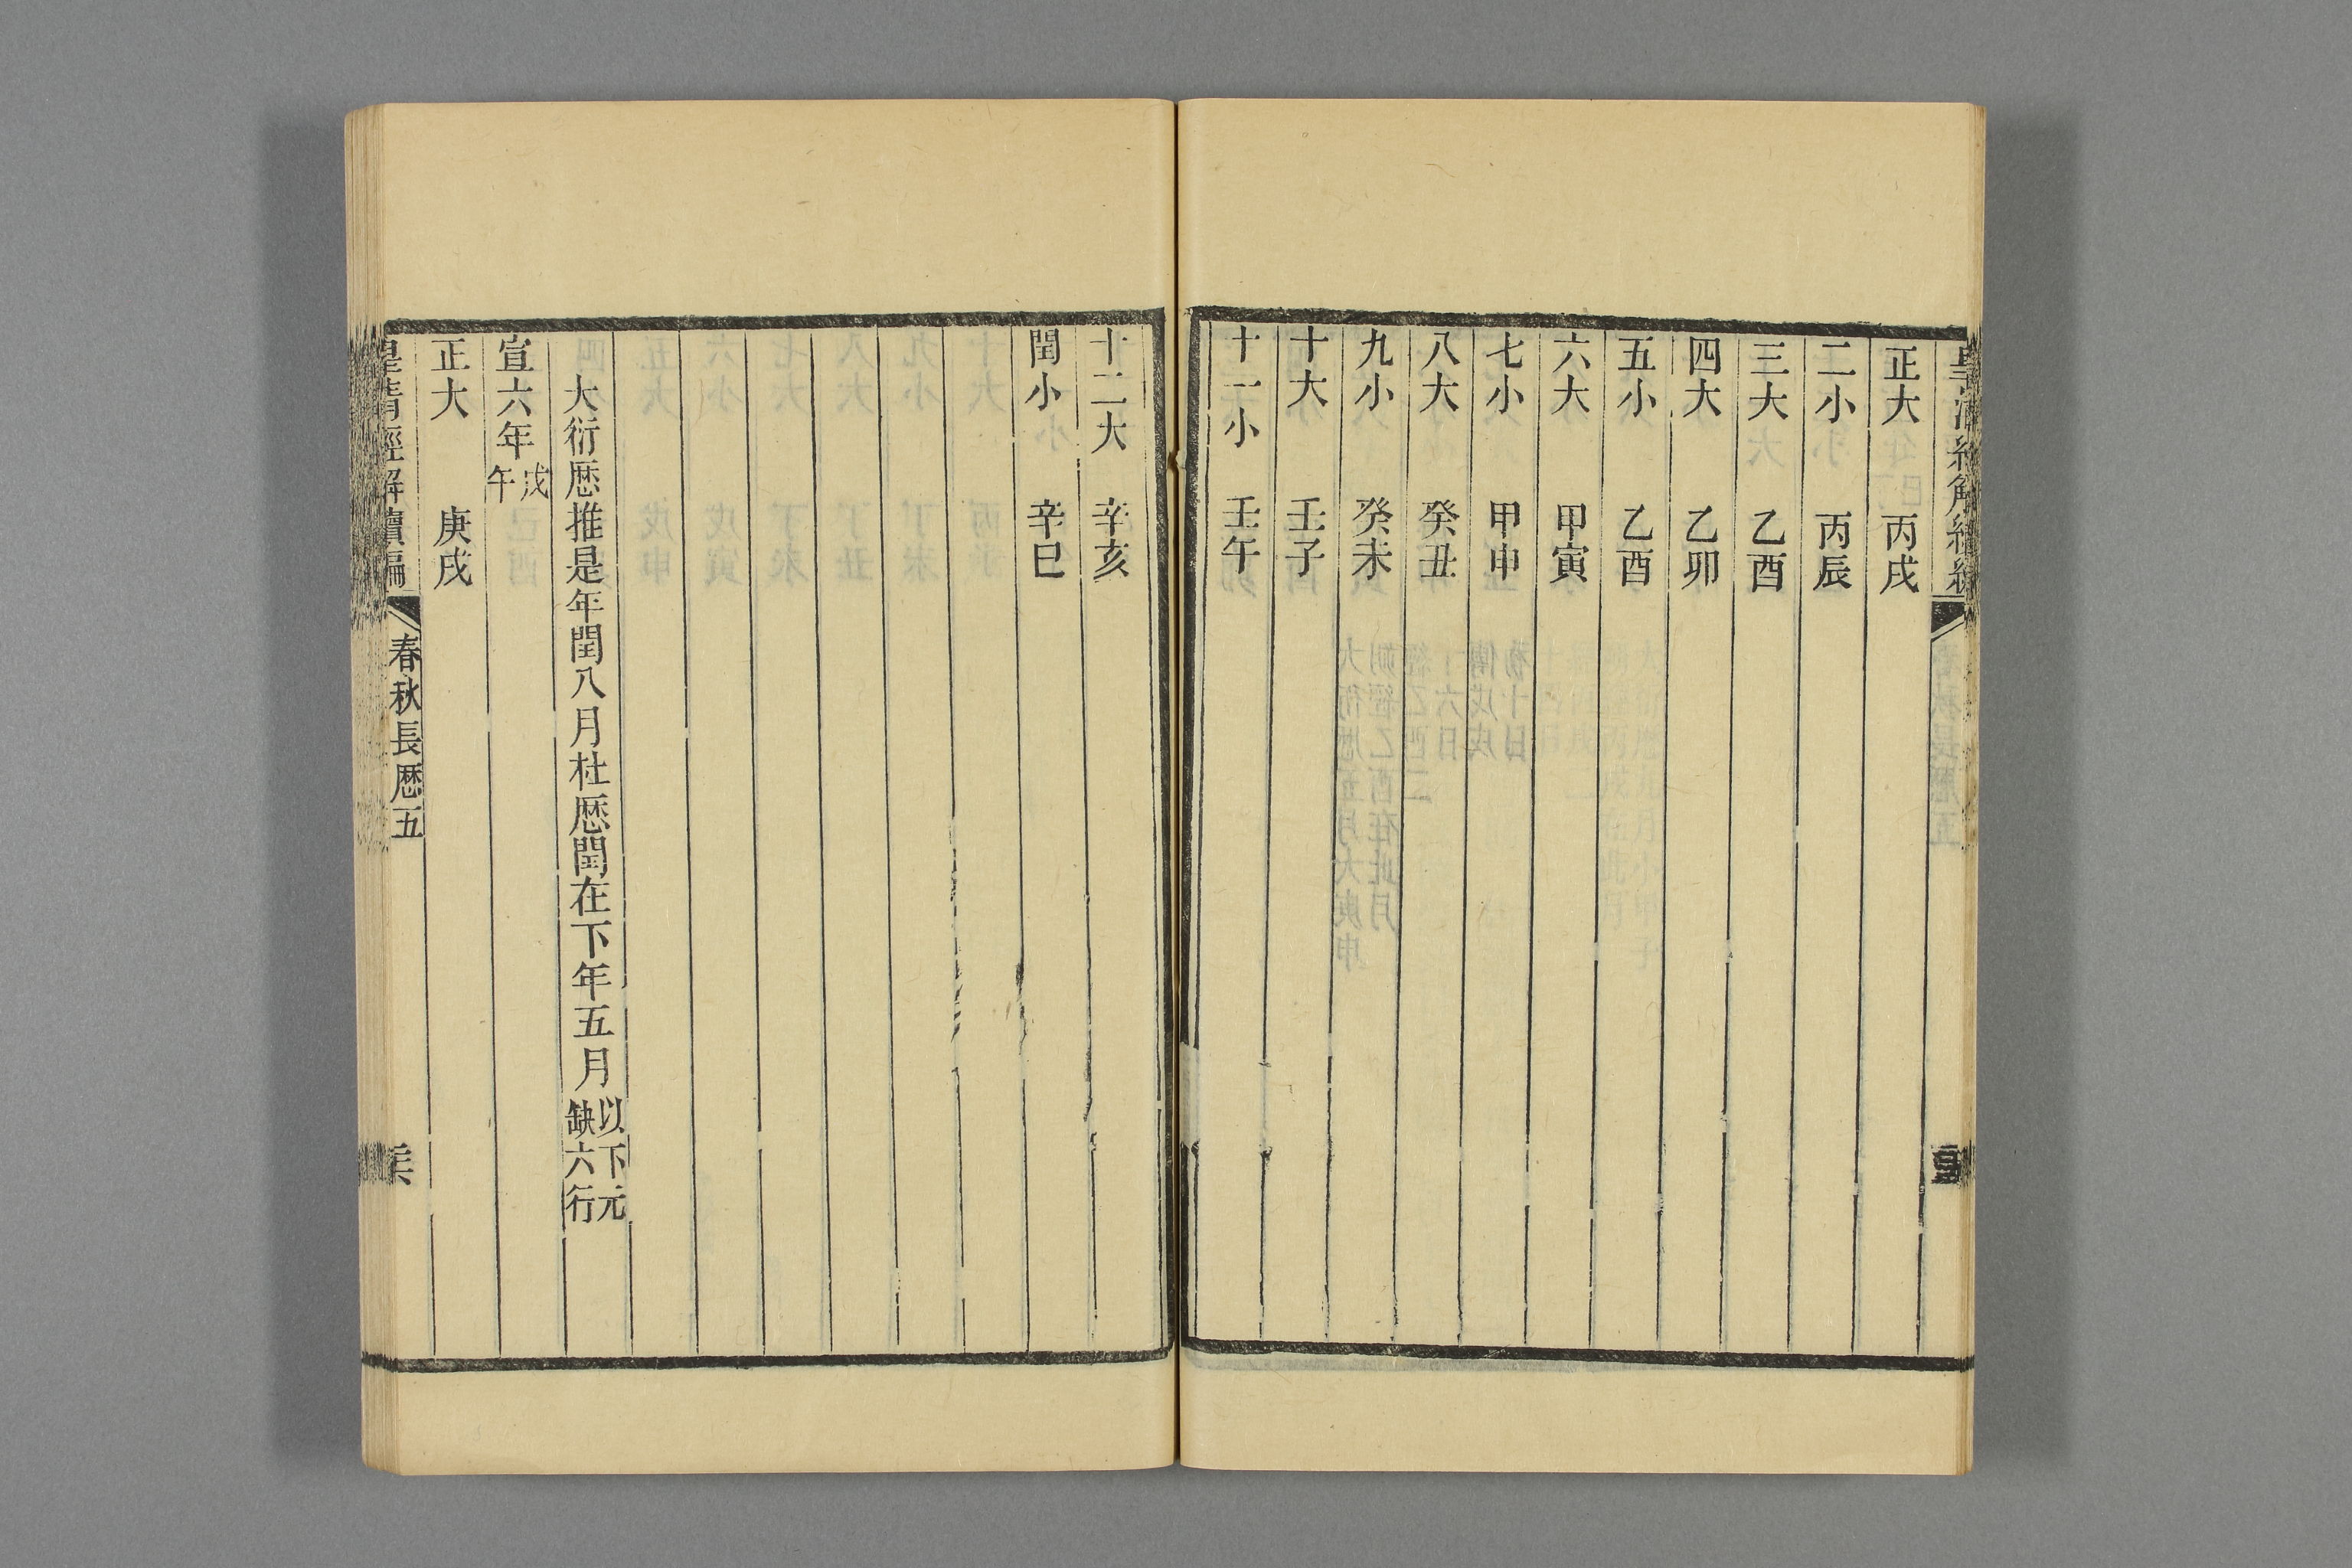 皇清經解續編
正大 丙戌
二小 丙辰
三大 乙酉
四大 乙卯
五小 乙酉
六大 甲寅
七小 甲申
八大 癸丑
九小 癸未
十大 壬子
十一小 壬午
十二大 辛亥
閏小 辛巳
大衍厯推是年閏八月杜厯閏在下年五月以下元缺六行
宣六年戊午
正大 庚戌
皇清經解續編 春秋長厯五